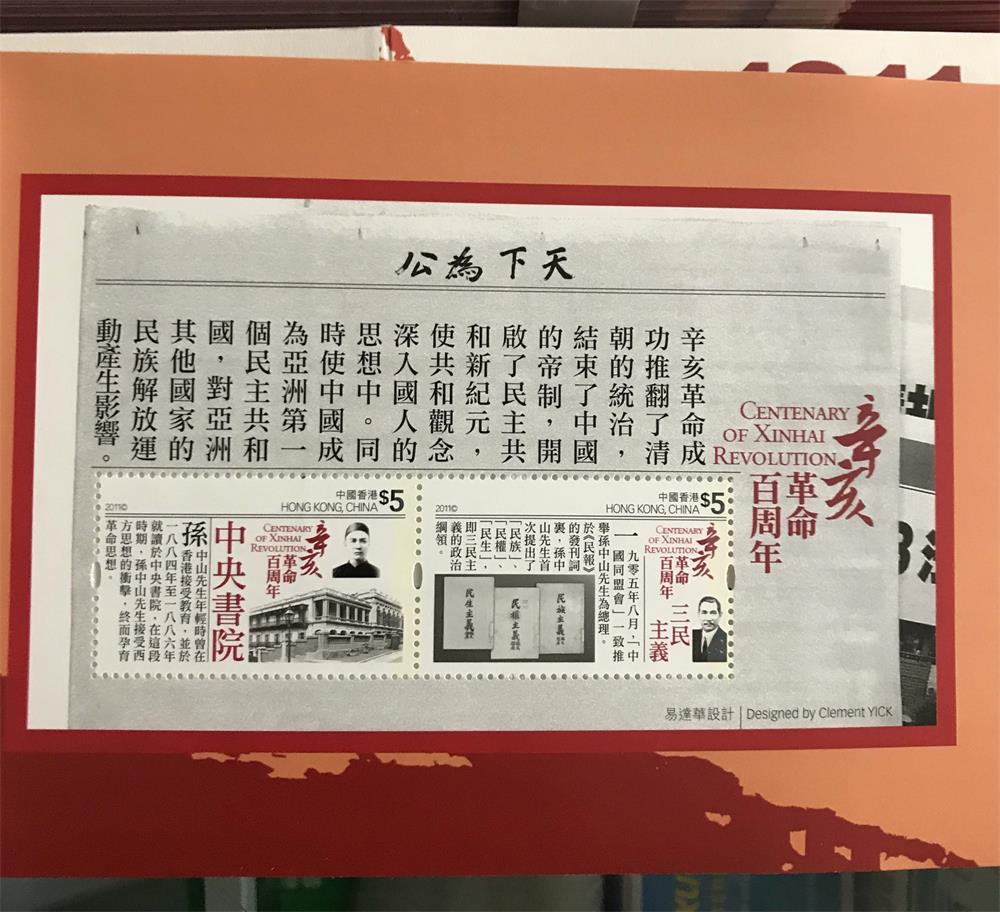 1911
天下為公
辛亥革命成
功推翻了清
朝的統治，
結束了中國
的帝制，開
啟了民主共
和新紀元，
使共和觀念
深入國人的
思想中。同
時使中國成
為亞洲第一
個民主共和
國，對亞洲
其他國家的
民族解放運
動產生影響。
CENTENARY
OF XINHAI
REVOLUTION
辛亥
革命
百周年
2011©
中國香港
HONG KONG, CHINA
$5
CENTENARY
OF XINHAI
REVOLUTION
辛亥
革命
百周年
中央書院
孫中山先生年輕時曾在
香港接受教育，並於
一八八四年至一八八六年
就讀於中央書院，在這段
時期，孫中山先生接受西
方思想的衝擊，終而孕育
革命思想。
2011©
中國香港
HONG KONG, CHINA
$5
CENTENARY
OF XINHAI
REVOLUTION
辛亥
革命
百周年
三民
主義
一九〇五年八月，「中
國同盟會」一致推
舉孫中山先生為總理。
於《民報》
的發刊詞
裏，孫中
山先生首
次提出了
「民族」、
「民權」、
「民生」，
即三民主
義的政治
綱領。
民族主義
民權主義
民生主義
易達華設計
Designed by Clement YICK